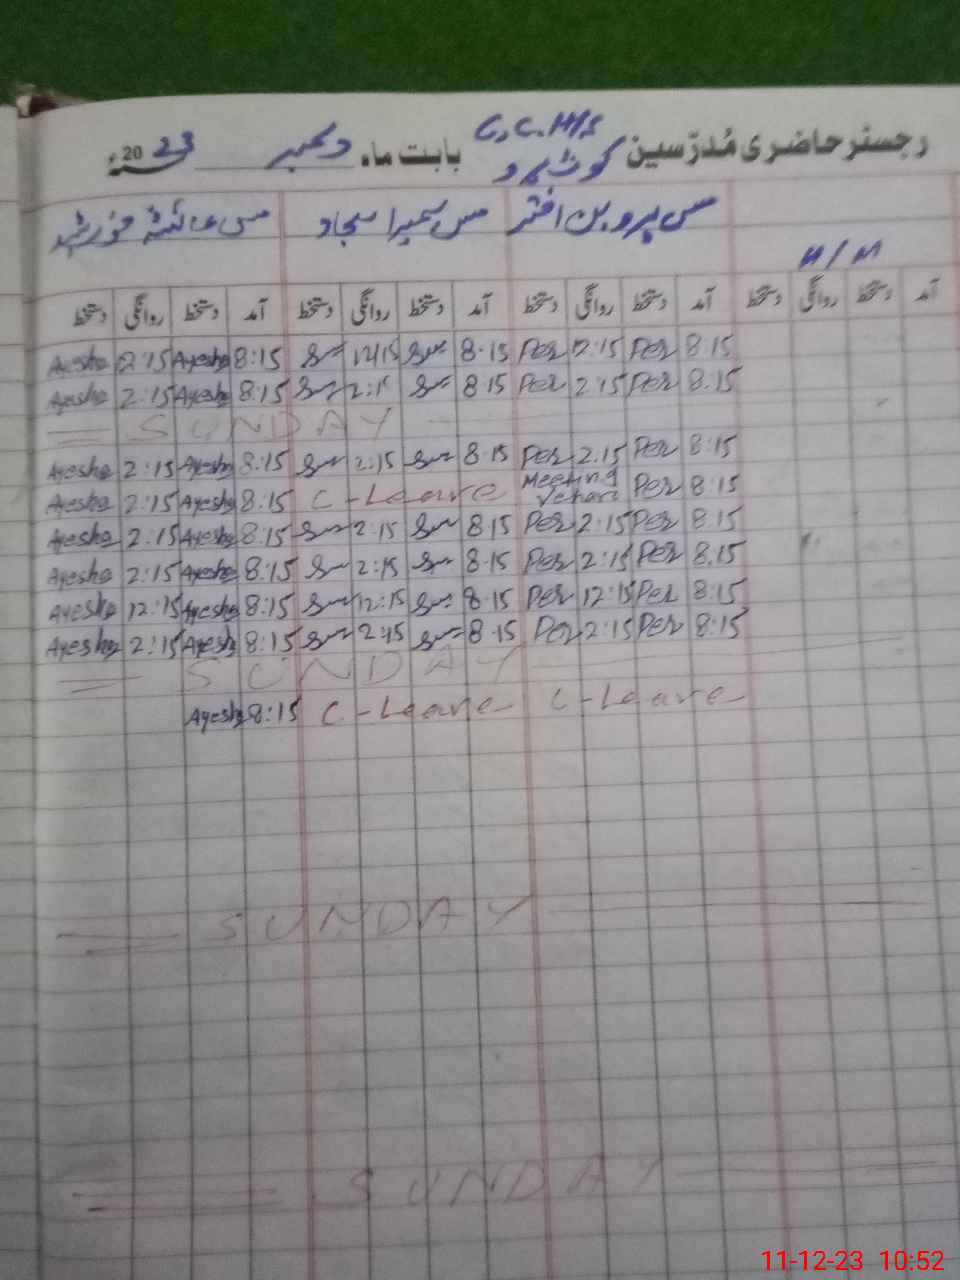 رجسٹر حاضری مُدرّسین G.C.M/S کوٹ بابت ماہ دسمبر 2023ء
مس پروین اختر مس سمیرا سجاد مس عائشہ خورشید
H/M
آمد دستخط روانگی دستخط آمد دستخط روانگی دستخط آمد دستخط روانگی دستخط آمد دستخط روانگی دستخط
Ayesha 12:15 Ayesha 8:15 12:15 8:15 Per 12:15 Per 8:15
Ayesha 2:15 Ayesha 8:15 2:15 8:15 Per 2:15 Per 8:15
SUNDAY
Ayesha 2:15 Ayesha 8:15 2:15 8:15 Per 2:15 Per 8:15
Ayesha 2:15 Ayesha 8:15 C-Leave Meeting Vehari Per 8:15
Ayesha 2:15 Ayesha 8:15 2:15 8:15 Per 2:15 Per 8:15
Ayesha 2:15 Ayesha 8:15 2:15 8:15 Per 2:15 Per 8:15
Ayesha 12:15 Ayesha 8:15 12:15 8:15 Per 12:15 Per 8:15
Ayesha 2:15 Ayesha 8:15 2:15 8:15 Per 2:15 Per 8:15
SUNDAY
Ayesha 8:15 C-Leave C-Leave
SUNDAY
SUNDAY
11-12-23 10:52